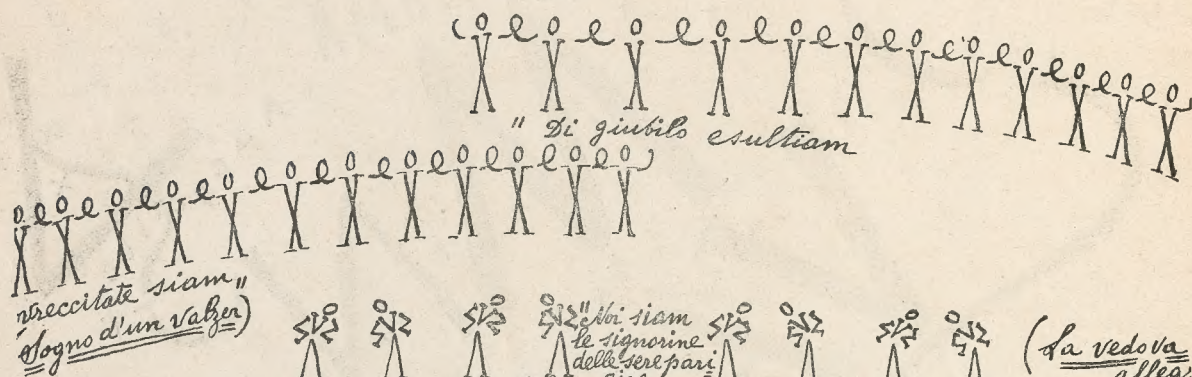 " Di giubilo esultiam
vreccitate siam "
Sogno d'un Valzer)
" Noi siam
le signorine
delle sere pari
(La vedova